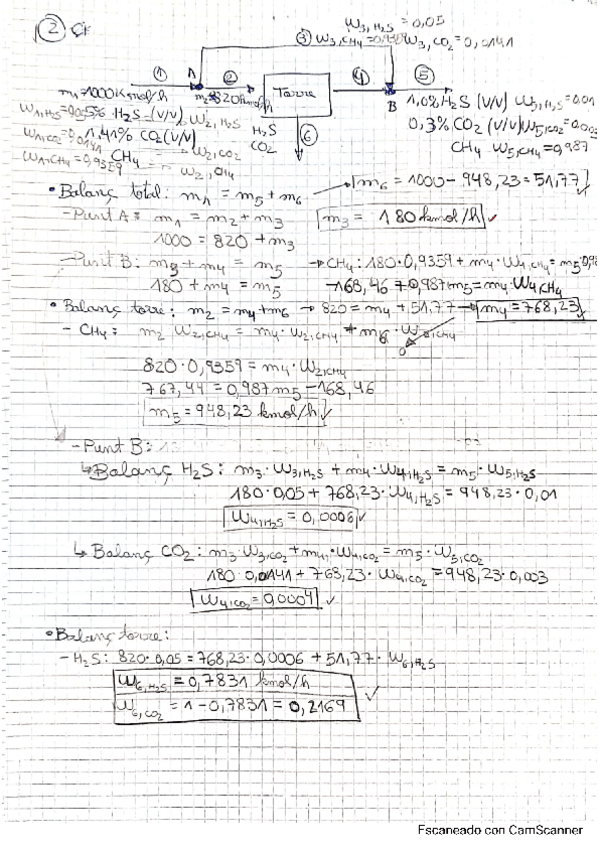 ② 
W3,H2S = 0,05
③ W3,CH4=0,9359 W3,CO2=0,0141
① A ② Torre ④ B ⑤
m1=1000 Kmol/h m2=820 Kmol/h
W1,H2S=0,05 5% H2S (v/v) W2,H2S H2S ⑥ 1,0% H2S (v/v) W5,H2S=0,01
W1,CO2=0,0141 1,41% CO2 (v/v) W2,CO2 CO2 0,3% CO2 (v/v) W5,CO2=0,003
W1,CH4=0,9359 CH4 W2,CH4 CH4 W5,CH4=0,987
• Balanç total: m1 = m5 + m6 → m6 = 1000 - 948,23 = 51,77
- Punt A: m1 = m2 + m3 m3 = 180 kmol/h ✓
1000 = 820 + m3
- Punt B: m3 + m4 = m5 → CH4: 180·0,9359 + m4·W4,CH4 = m5·0,98
180 + m4 = m5 -168,46 + 0,987m5 = m4·W4,CH4
• Balanç torre: m2 = m4 + m6 → 820 = m4 + 51,77 → m4 = 768,23 ✓
- CH4: m2 W2,CH4 = m4·W2,CH4 + m6·W2,CH4
0
820·0,9359 = m4·W2,CH4
767,44 = 0,987m5 - 168,46
m5 = 948,23 kmol/h ✓
- Punt B:
↳ Balanç H2S: m3·W3,H2S + m4·W4,H2S = m5·W5,H2S
180·0,05 + 768,23·W4,H2S = 948,23·0,01
W4,H2S = 0,0006 ✓
↳ Balanç CO2: m3·W3,CO2 + m4·W4,CO2 = m5·W5,CO2
180·0,0141 + 768,23·W4,CO2 = 948,23·0,003
W4,CO2 = 0,0004 ✓
• Balanç torre:
- H2S: 820·0,05 = 768,23·0,0006 + 51,77·W6,H2S
W6,H2S = 0,7831 kmol/h ✓
W6,CO2 = 1 - 0,7831 = 0,2169
Escaneado con CamScanner